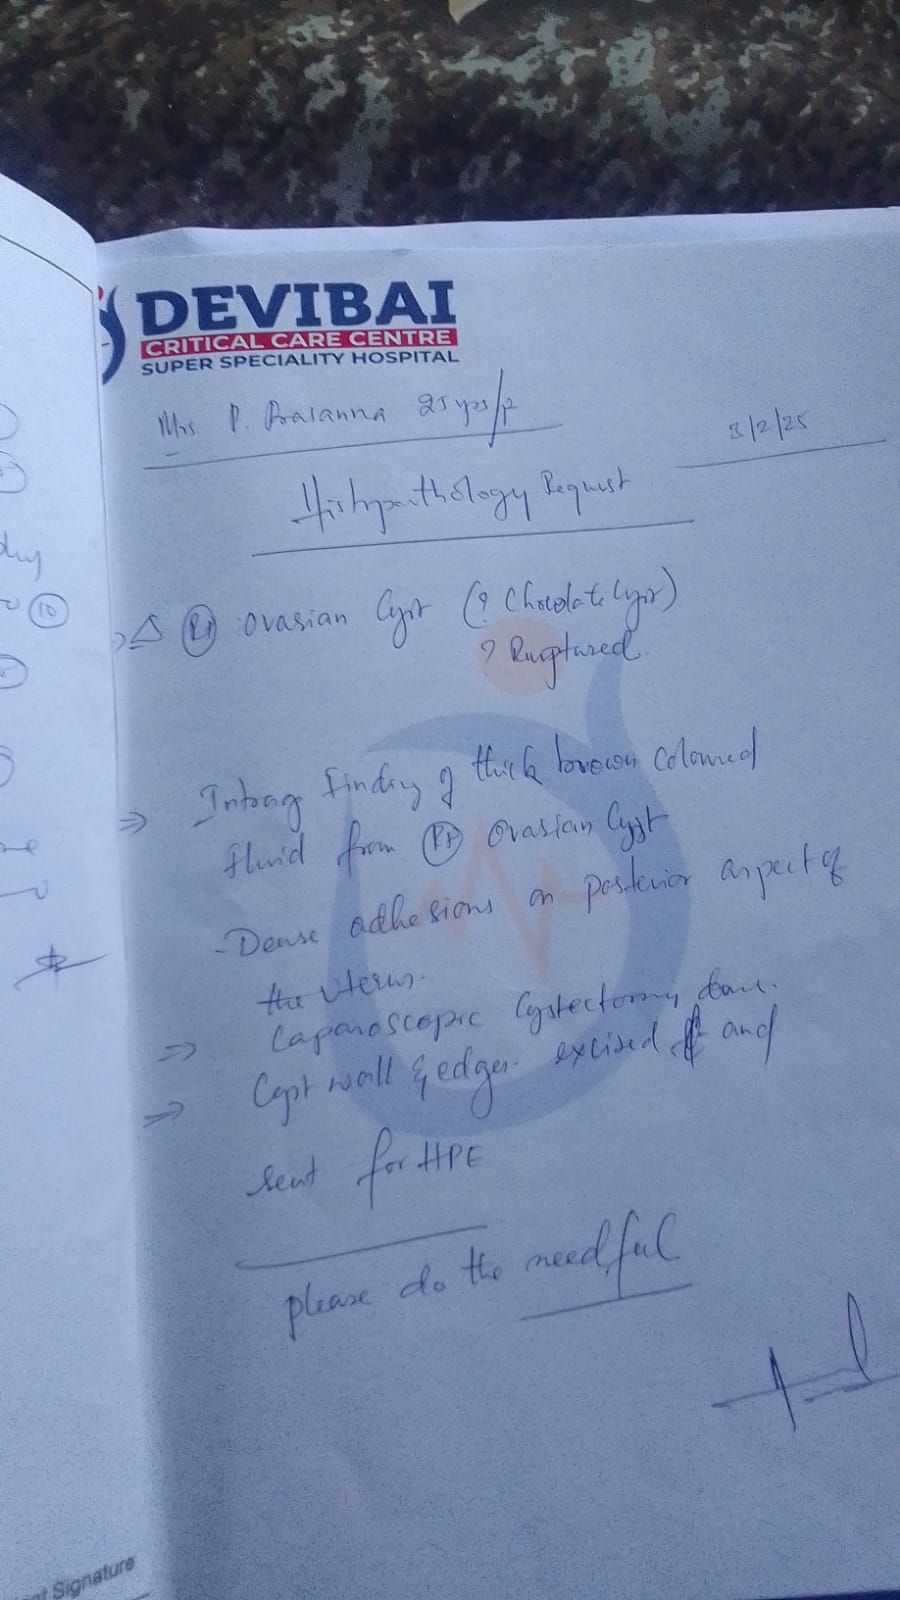 DEVIBAI
CRITICAL CARE CENTRE
SUPER SPECIALITY HOSPITAL
Mrs P. Prasanna 25 yrs/F
3/2/25
Histopathology Request
Δ Rt Ovarian Cyst (? Chocolate Cyst)
? Ruptured.
⇒ Intraop finding of thick brown coloured
fluid from Rt Ovarian Cyst
- Dense adhesions on posterior aspect of
the uterus.
⇒ Laparoscopic Cystectomy done.
⇒ Cyst wall & edges excised and
sent for HPE
please do the needful
Signature
10